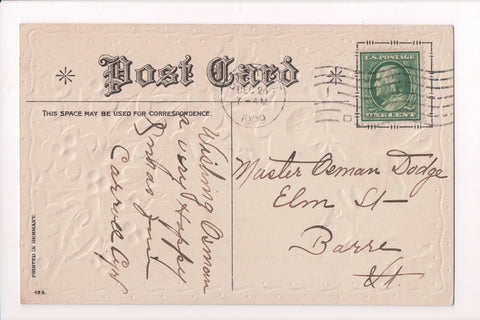 Post Card
THIS SPACE MAY BE USED FOR CORRESPONDENCE.
DEC 24
7-AM
1909
U.S. POSTAGE
ONE CENT
Wishing Osman
a very Happy
Xmas from
Master Osman Dodge
Elm St
Barre
Vt.
PRINTED IN GERMANY.